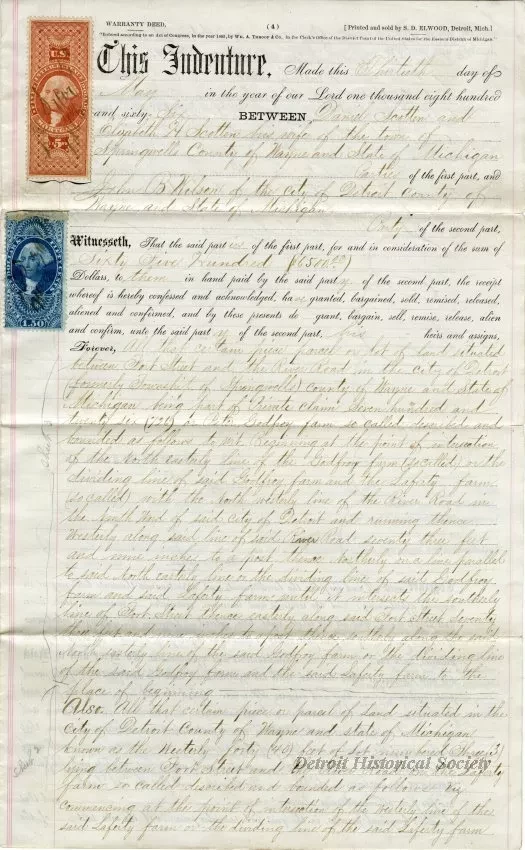 WARRANTY DEED. (4) [Printed and sold by S. D. ELWOOD, Detroit, Mich.]
This Indenture, Made this Thirtieth day of
May in the year of our Lord one thousand eight hundred
and sixty Six BETWEEN Daniel Scotten and
Elizabeth H Scotten his wife of the town of
Springwells County of Wayne and State of Michigan
Parties of the first part, and
John B Wilson of the City of Detroit County of
Wayne and State of Michigan
Party of the second part,
Witnesseth, That the said parties of the first part, for and in consideration of the sum of
Sixty five hundred
Dollars, to them in hand paid by the said party of the second part, the receipt
whereof is hereby confessed and acknowledged, have granted, bargained, sold, remised, released,
aliened and confirmed, and by these presents do grant, bargain, sell, remise, release, alien
and confirm, unto the said party of the second part, his heirs and assigns,
Forever, All that certain piece or parcel of land situated
between Fort Street and the River Road in the City of Detroit
(formerly Township of Springwells) County of Wayne and State of
Michigan being part of Private claim Seven hundred and
twenty six (726) or Godfroy farm so called described and
bounded as follows to wit Beginning at the point of intersection
of the North easterly line of the Godfroy farm (so called) or the
dividing line of said Godfroy farm and the Lafferty farm
(so called) with the North westerly line of the River Road in
the Ward of said City of Detroit and running thence
Westerly along said line of said River Road seventy three feet
and nine inches to a post thence Northerly on a line parallel
to said North easterly line or the dividing line of said Godfroy
farm and said Lafferty farm until it intersects the southerly
line of Fort Street thence easterly along said Fort Street seventy
three feet and nine inches to a post thence southerly along the said
North easterly line of the said Godfroy farm or the dividing line
of the said Godfroy farm and the said Lafferty farm to the
place of beginning
Also. All that certain piece or parcel of Land situated in the
City of Detroit County of Wayne and state of Michigan
known as the Westerly forty (40) feet of Lot numbered Three (3)
lying between Fort Street and the River Road on the Lafferty
farm so called described and bounded as follows viz
commencing at the point of intersection of the Westerly line of the
said Lafferty farm or the dividing line of the said Lafferty farm
Detroit Historical Society
U.S.
1.50